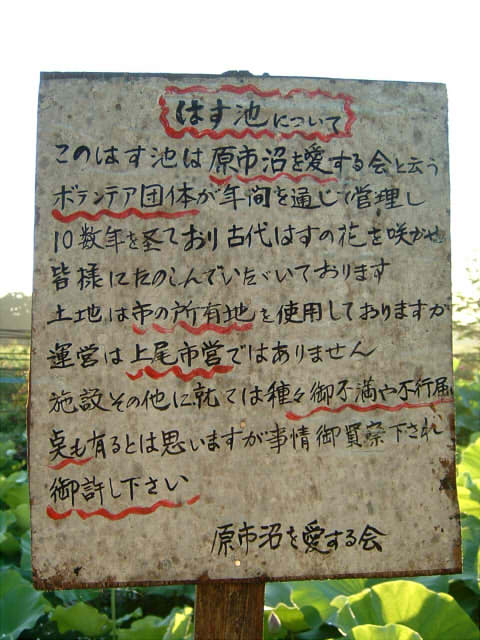 はす池について
このはす池は原市沼を愛する会と云う
ボランテア団体が年間を通じて管理し
10数年を経ており古代はすの花を咲かせ
皆様にたのしんでいたゞいております
土地は市の所有地を使用しておりますが
運営は上尾市営ではありません
施設その他に就ては種々御不満や不行届
点も有るとは思いますが事情御賢察下され
御許し下さい
原市沼を愛する会